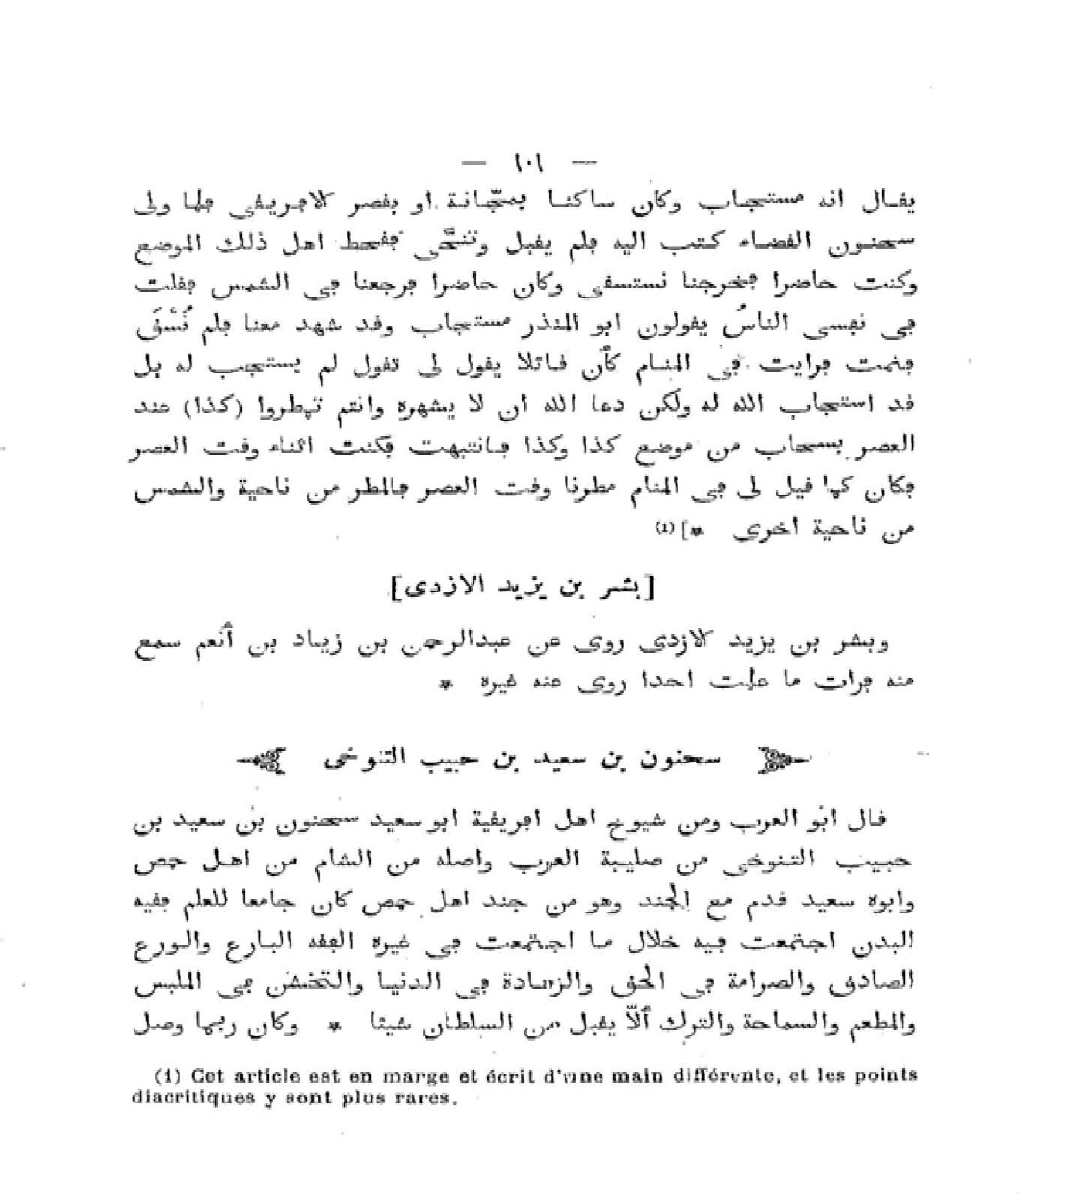 — ١٠١ —
يقال انه مستجاب وكان ساكنا بمجّانة او بقصر الافريقي فلما ولى
سحنون القضاء كتب اليه فلم يقبل وتنحّى فقحط اهل ذلك الموضع
وكنت حاضرا فخرجنا نستسقى وكان حاضرا فرجعنا فى الشمس فقلت
فى نفسى الناسُ يقولون ابو المنذر مستجاب وقد شهد معنا فلم نُسْقَ
فنمت فرايت فى المنام كأن قائلا يقول لى تقول لم يستجب له بل
قد استجاب الله له ولكن دعا الله ان لا يشهره وانتم تمطروا (كذا) عند
العصر بسحاب من موضع كذا وكذا فانتبهت فكنت اثناء وقت العصر
فكان كما قيل لى فى المنام مطرنا وقت العصر فالمطر من ناحية والشمس
من ناحية اخرى *] (1)
[بشر بن يزيد الازدى]
وبشر بن يزيد الازدى روى عن عبدالرحمن بن زياد بن أنعم سمع
منه فرات ما علمت احدا روى عنه غيره *
سحنون بن سعيد بن حبيب التنوخى
قال ابو العرب ومن شيوخ اهل افريقية ابو سعيد سحنون بن سعيد بن
حبيب التنوخى من صليبة العرب واصله من الشام من اهل حمص
وابوه سعيد قدم مع الجند وهو من جند اهل حمص كان جامعا للعلم فقيه
البدن اجتمعت فيه خلال ما اجتمعت فى غيره الفقه البارع والورع
الصادق والصرامة فى الحق والزهادة فى الدنيا والتخشن فى الملبس
والمطعم والسماحة والترك ألّا يقبل من السلطان شيئا * وكان ربما وصل
(1) Cet article est en marge et écrit d'une main différente, et les points
diacritiques y sont plus rares.